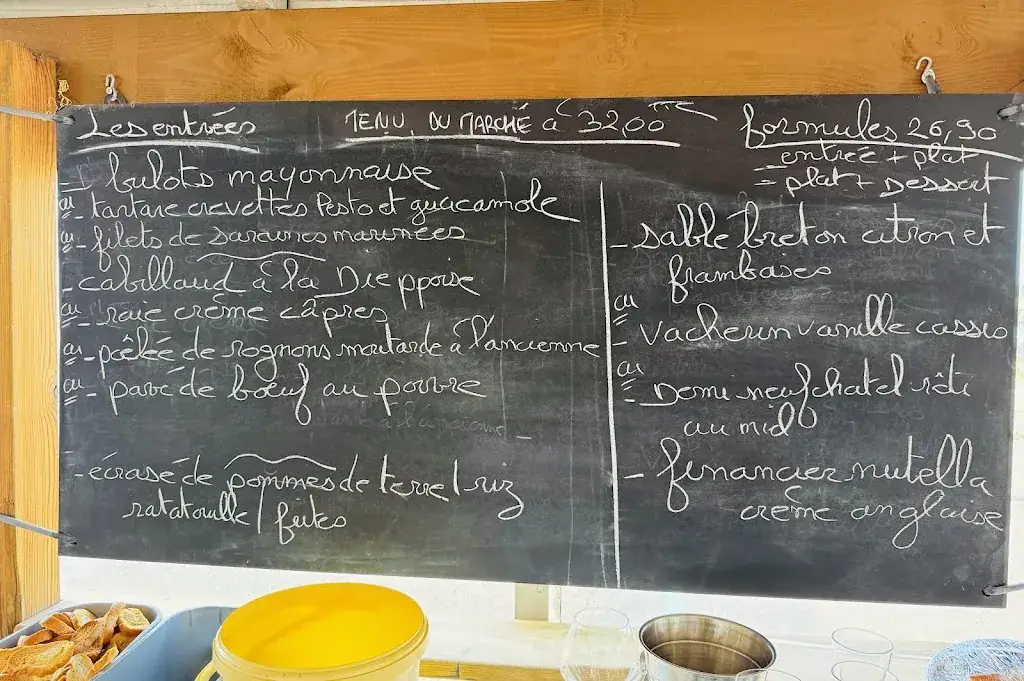 Les entrées
MENU DU MARCHÉ à 32,00 TTC
formules 26,90
- entrée + plat
- plat + Dessert
- bulots mayonnaise
ou - tartare crevettes Pesto et guacamole
ou - filets de sardines marinées
- cabillaud à la Dieppoise
ou - raie crème câpres
ou - poêlée de rognons moutarde à l'ancienne
ou - pavé de bœuf au poivre
- écrasé de pommes de terre / riz
ratatouille / frites
- sablé breton citron et
framboises
ou
- vacherin vanille cassis
ou
- Demi neufchatel rôti
au miel
- financier nutella
crème anglaise